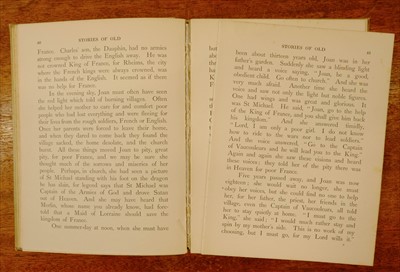 STORIES OF OLD
France. Charles was the Dauphin, had no armies
strong enough to drive the English away. He was
not crowned King of France, for Rheims, the city
where the French kings were always crowned, was
in the hands of the English. It seemed as if there
was no help for France.
In the evening sky, Joan must often have seen
the red light which told of burning villages. Often
she helped her mother to care for and comfort poor
people who had lost everything and were fleeing for
their lives from the rough soldiers, French or English.
Once her parents were forced to leave their home,
and when they dared to come back they found the
village sacked, the home desolate, and the church
burnt. All these things moved Joan to pity, great
pity, for poor France, and we may be sure she
thought much of the sorrows and miseries of her
people. Perhaps, in church, she had seen a picture
of St Michael standing with his foot on the dragon
he has slain, for legend says that St Michael was
Captain of the Armies of God and drove Satan
out of Heaven. And she may have heard that
Merlin, whose name you already know, had fore-
told that a Maid of Lorraine should save the
kingdom of France.
One summer-day at noon, when she must have
STORIES OF OLD
been about thirteen years old, Joan was in her
father's garden. Suddenly she saw a blinding light
and heard a voice saying, "Joan, be a good,
obedient child. Go often to church." And she was
very much afraid. Another time she heard the
voice and saw not only the light but noble figures.
One had wings and was great and glorious. It
was St Michael. He said, "Joan, go to the help
of the King of France, and you shall give him back
his kingdom." And she answered timidly,
"Lord, I am only a poor girl. I do not know
how to ride to the wars nor to lead soldiers."
And the voice answered, "Go to the Captain
of Vaucouleurs and he will lead you to the King."
Again and again she saw these visions and heard
these voices; they told her of the pity there was
in Heaven for poor France.
Five years passed away, and Joan was now
eighteen; she would wait no longer, she must
obey her voices, but she could find no one to help
her, for her father, the priest, her friends in the
village, even the Captain of Vaucouleurs, all told
her to stay quietly at home. "I must go to the
King," she said; "I would much rather stay and
spin by my mother's side. This is no work of my
choosing, but I must go, for my Lord wills it."